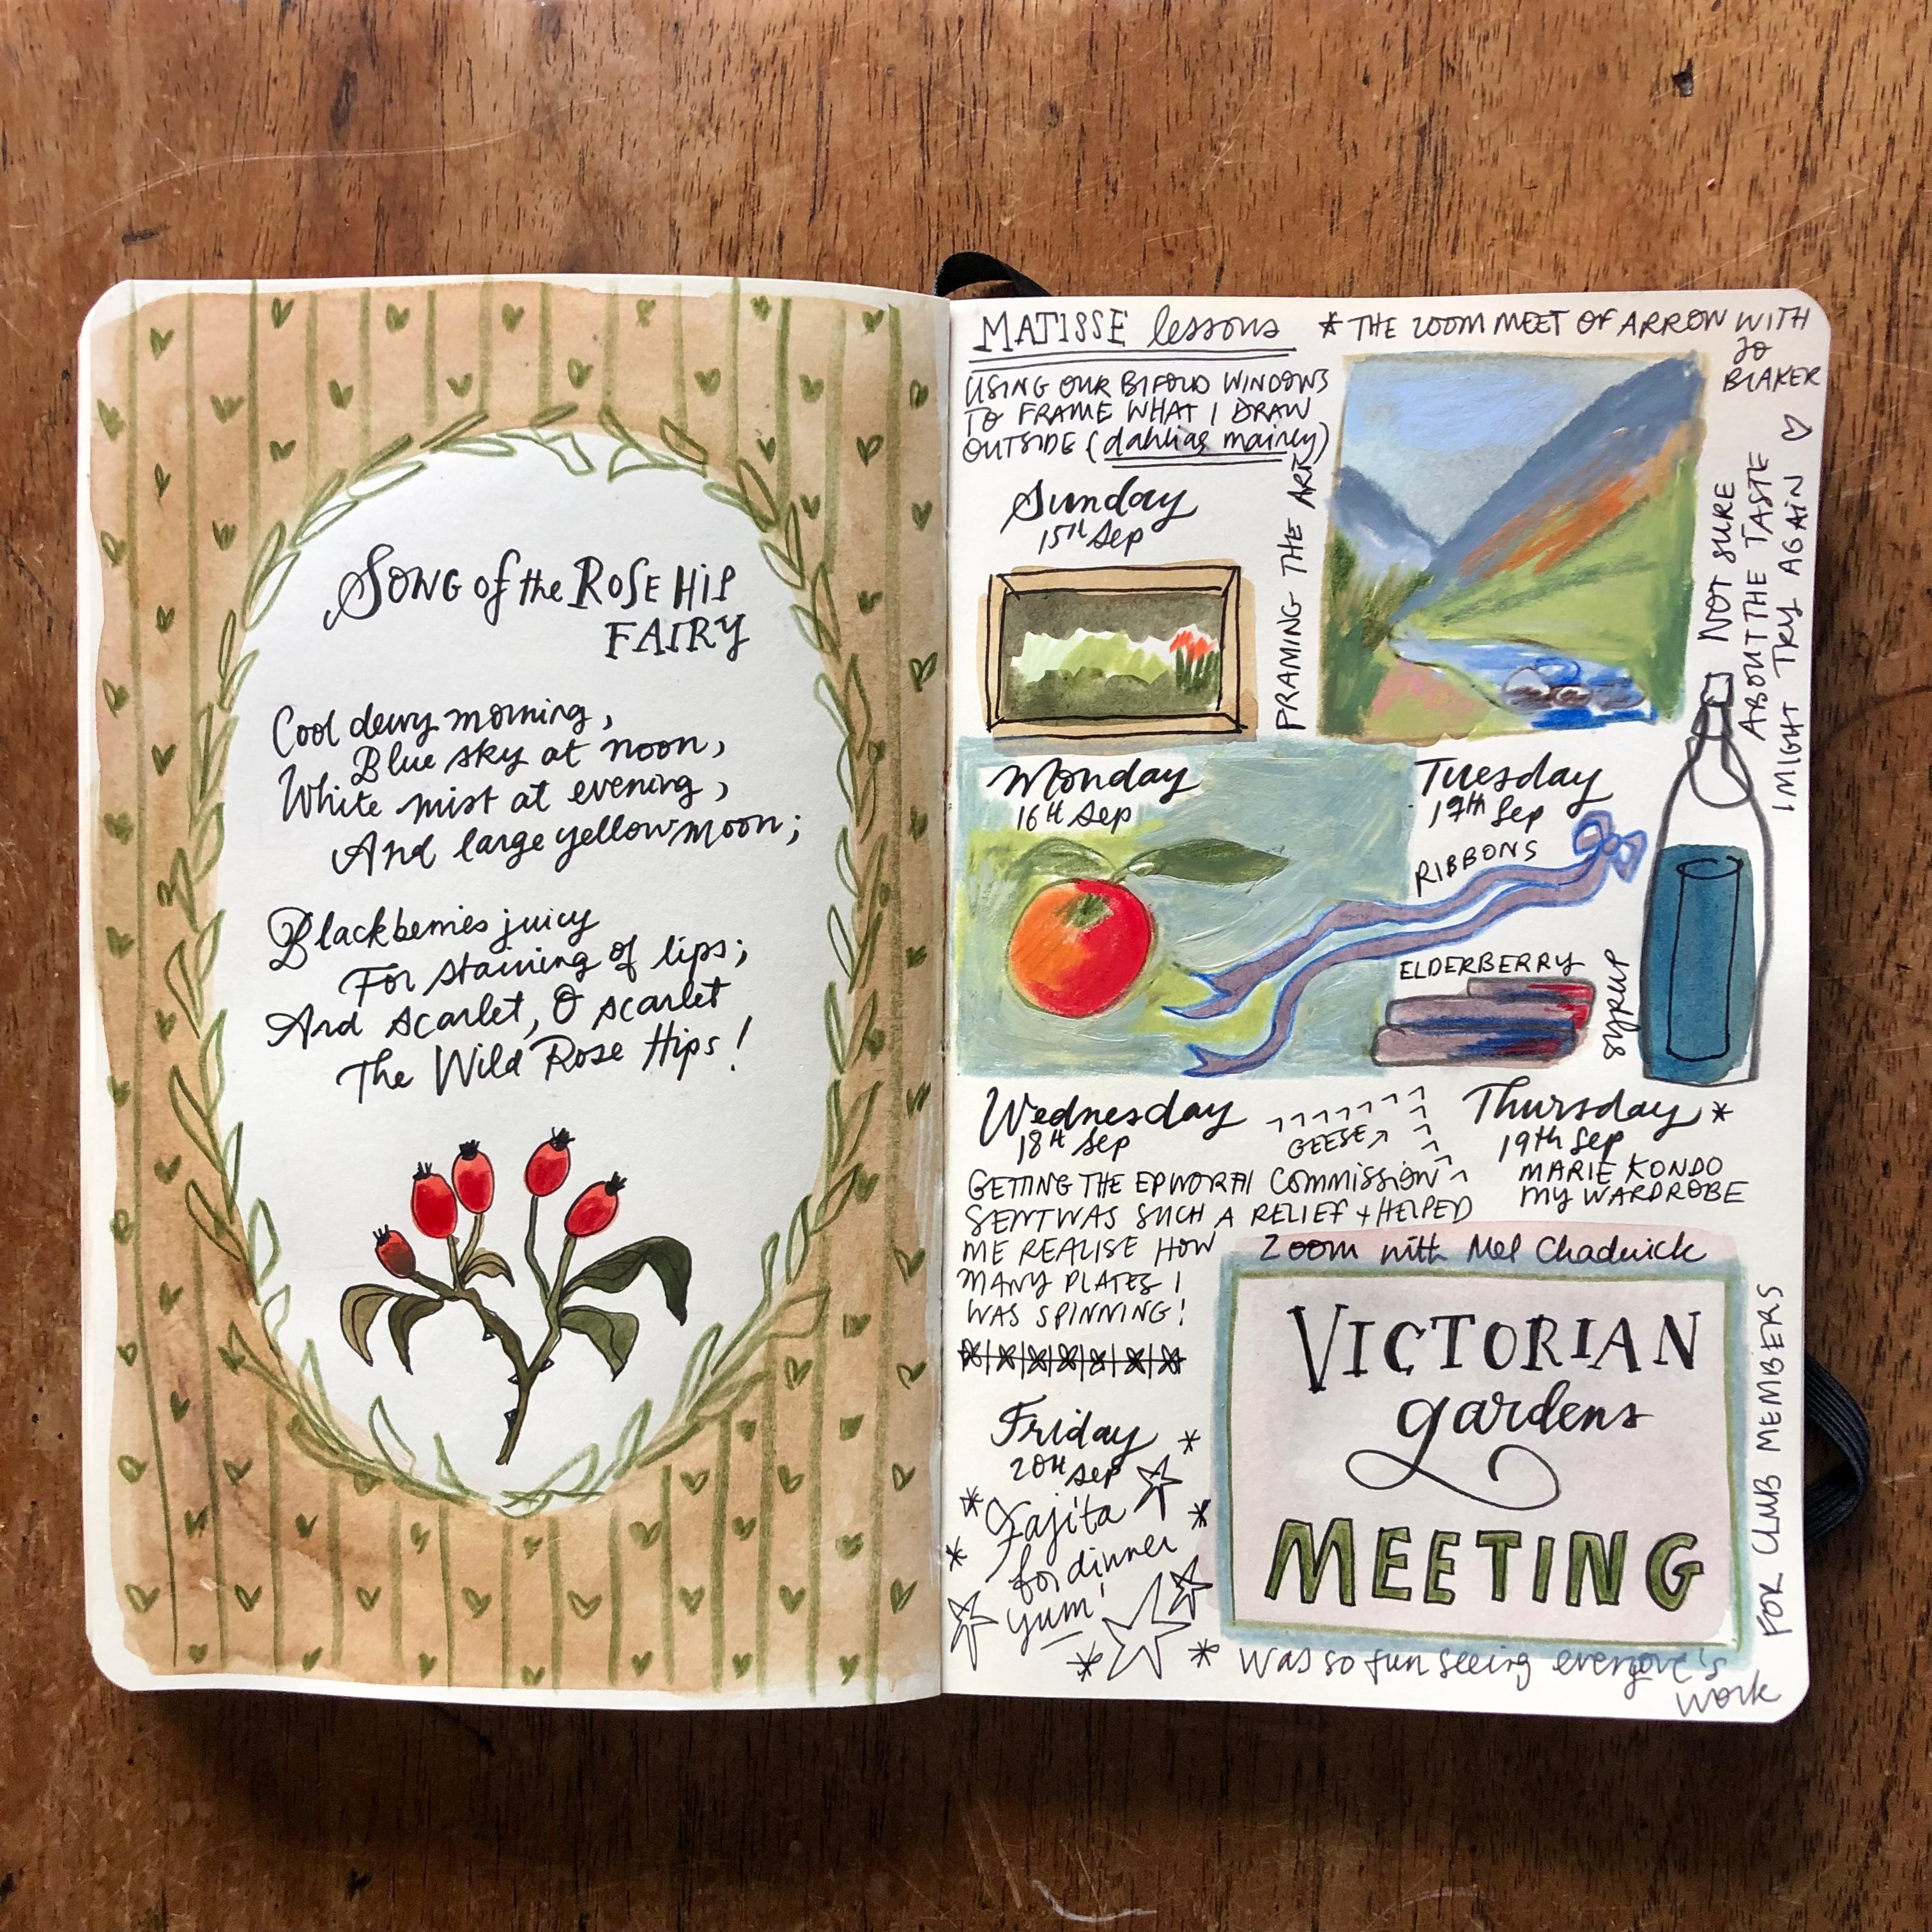 SONG of the ROSE HIP
FAIRY
Cool dewy morning,
Blue sky at noon,
White mist at evening,
And large yellow moon;
Blackberries juicy
For staining of lips;
And scarlet, O scarlet
The Wild Rose Hips!
MATISSE lessons
USING OUR BIFOLD WINDOWS
TO FRAME WHAT I DRAW
OUTSIDE (dahlias mainly)
* THE ZOOM MEET OF ARROW WITH
JO
BLAKER
Sunday
15th Sep
FRAMING THE ART
NOT SURE
ABOUT THE TASTE
I MIGHT TRY AGAIN ♡
Monday
16th Sep
Tuesday
17th Sep
RIBBONS
ELDERBERRY
SYRUP
Wednesday
18th Sep
GEESE
GETTING THE EPWORTH COMMISSION
SENT WAS SUCH A RELIEF + HELPED
ME REALISE HOW
MANY PLATES I
WAS SPINNING!
Thursday *
19th Sep
MARIE KONDO
MY WARDROBE
Zoom with Mel Chadwick
VICTORIAN
gardens
MEETING
FOR CLUB MEMBERS
was so fun seeing everyone's
work
Friday
20th Sep
Fajita
for dinner
yum!